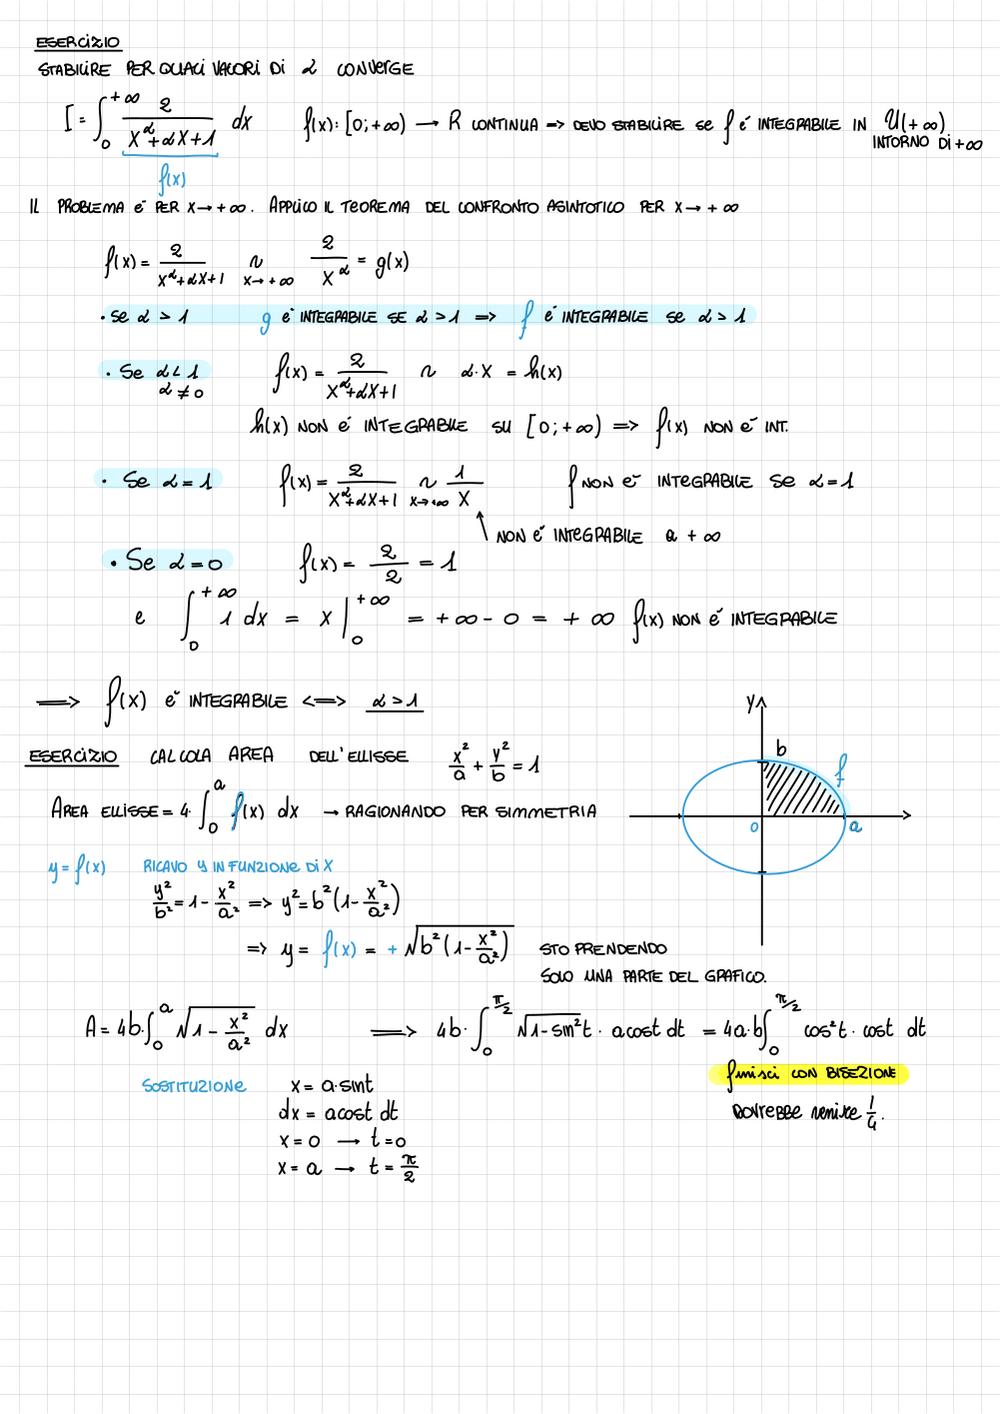 ESERCIZIO
STABILIRE PER QUALI VALORI DI α CONVERGE
I = ∫₀^{+∞} 2/(x^α+αx+1) dx f(x): [0;+∞) → R CONTINUA => DEVO STABILIRE SE f é INTEGRABILE IN U(+∞)
INTORNO DI +∞
f(x)
IL PROBLEMA é PER x→+∞. APPLICO IL TEOREMA DEL CONFRONTO ASINTOTICO PER x→+∞
f(x) = 2/(x^α+αx+1) ~ x→+∞ 2/x^α = g(x)
• Se α > 1 g é INTEGRABILE SE α > 1 => f é INTEGRABILE se α > 1
• Se α < 1 f(x) = 2/(x^α+αx+1) ~ α·x = h(x)
α ≠ 0
h(x) NON é INTEGRABILE SU [0;+∞) => f(x) NON é INT.
• Se α = 1 f(x) = 2/(x^α+αx+1) ~ x→+∞ 1/x f NON é INTEGRABILE SE α = 1
NON é INTEGRABILE a +∞
• Se α = 0 f(x) = 2/2 = 1
e ∫₀^{+∞} 1 dx = x |₀^{+∞} = +∞ - 0 = +∞ f(x) NON é INTEGRABILE
=> f(x) é INTEGRABILE <=> α > 1
y
ESERCIZIO CALCOLA AREA DELL'ELLISSE x²/a + y²/b = 1
b
f
AREA ELLISSE = 4·∫₀^a f(x) dx → RAGIONANDO PER SIMMETRIA
0 a
y = f(x) RICAVO y IN FUNZIONE DI x
y²/b² = 1 - x²/a² => y² = b²(1 - x²/a²)
=> y = f(x) = + √(b²(1 - x²/a²)) STO PRENDENDO
SOLO UNA PARTE DEL GRAFICO.
A = 4b·∫₀^a √(1 - x²/a²) dx => 4b·∫₀^{π/2} √(1-sin²t) · a cost dt = 4a·b∫₀^{π/2} cos²t · cost dt
finisci CON BISEZIONE
SOSTITUZIONE x = a·sint
DOVREBBE venire 1/4.
dx = a cost dt
x = 0 → t = 0
x = a → t = π/2